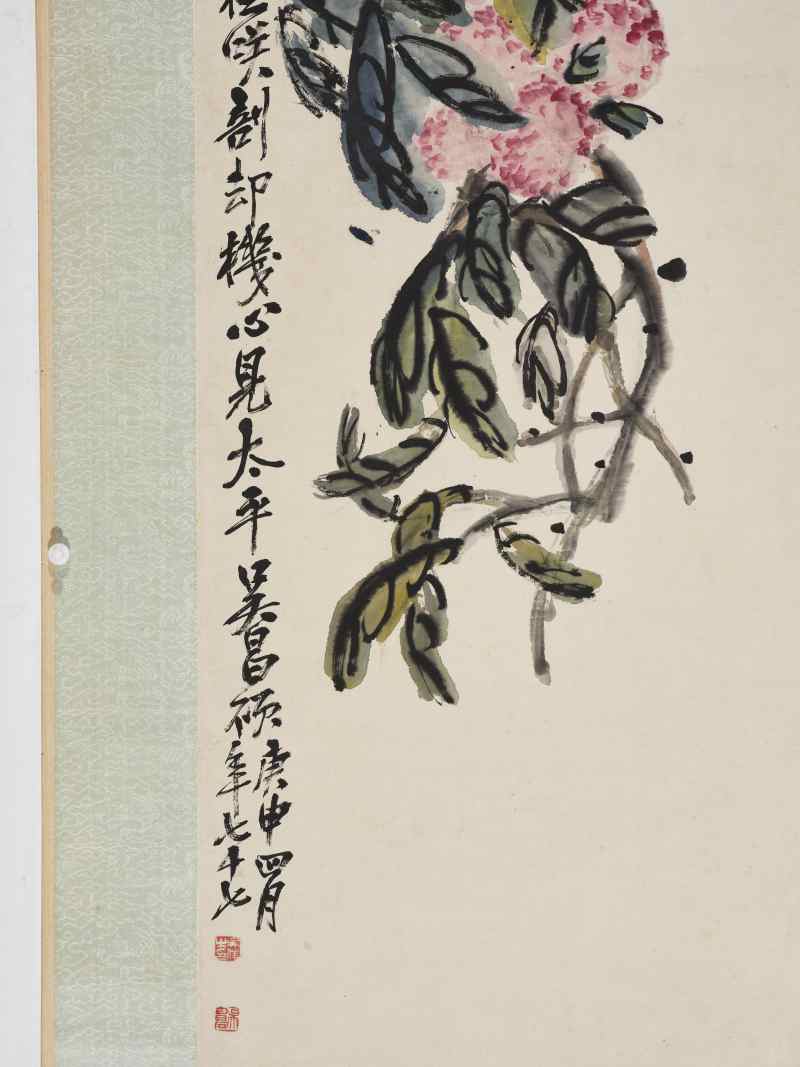 咲剖却機心見太平吳昌碩
庚申四月
年七十七